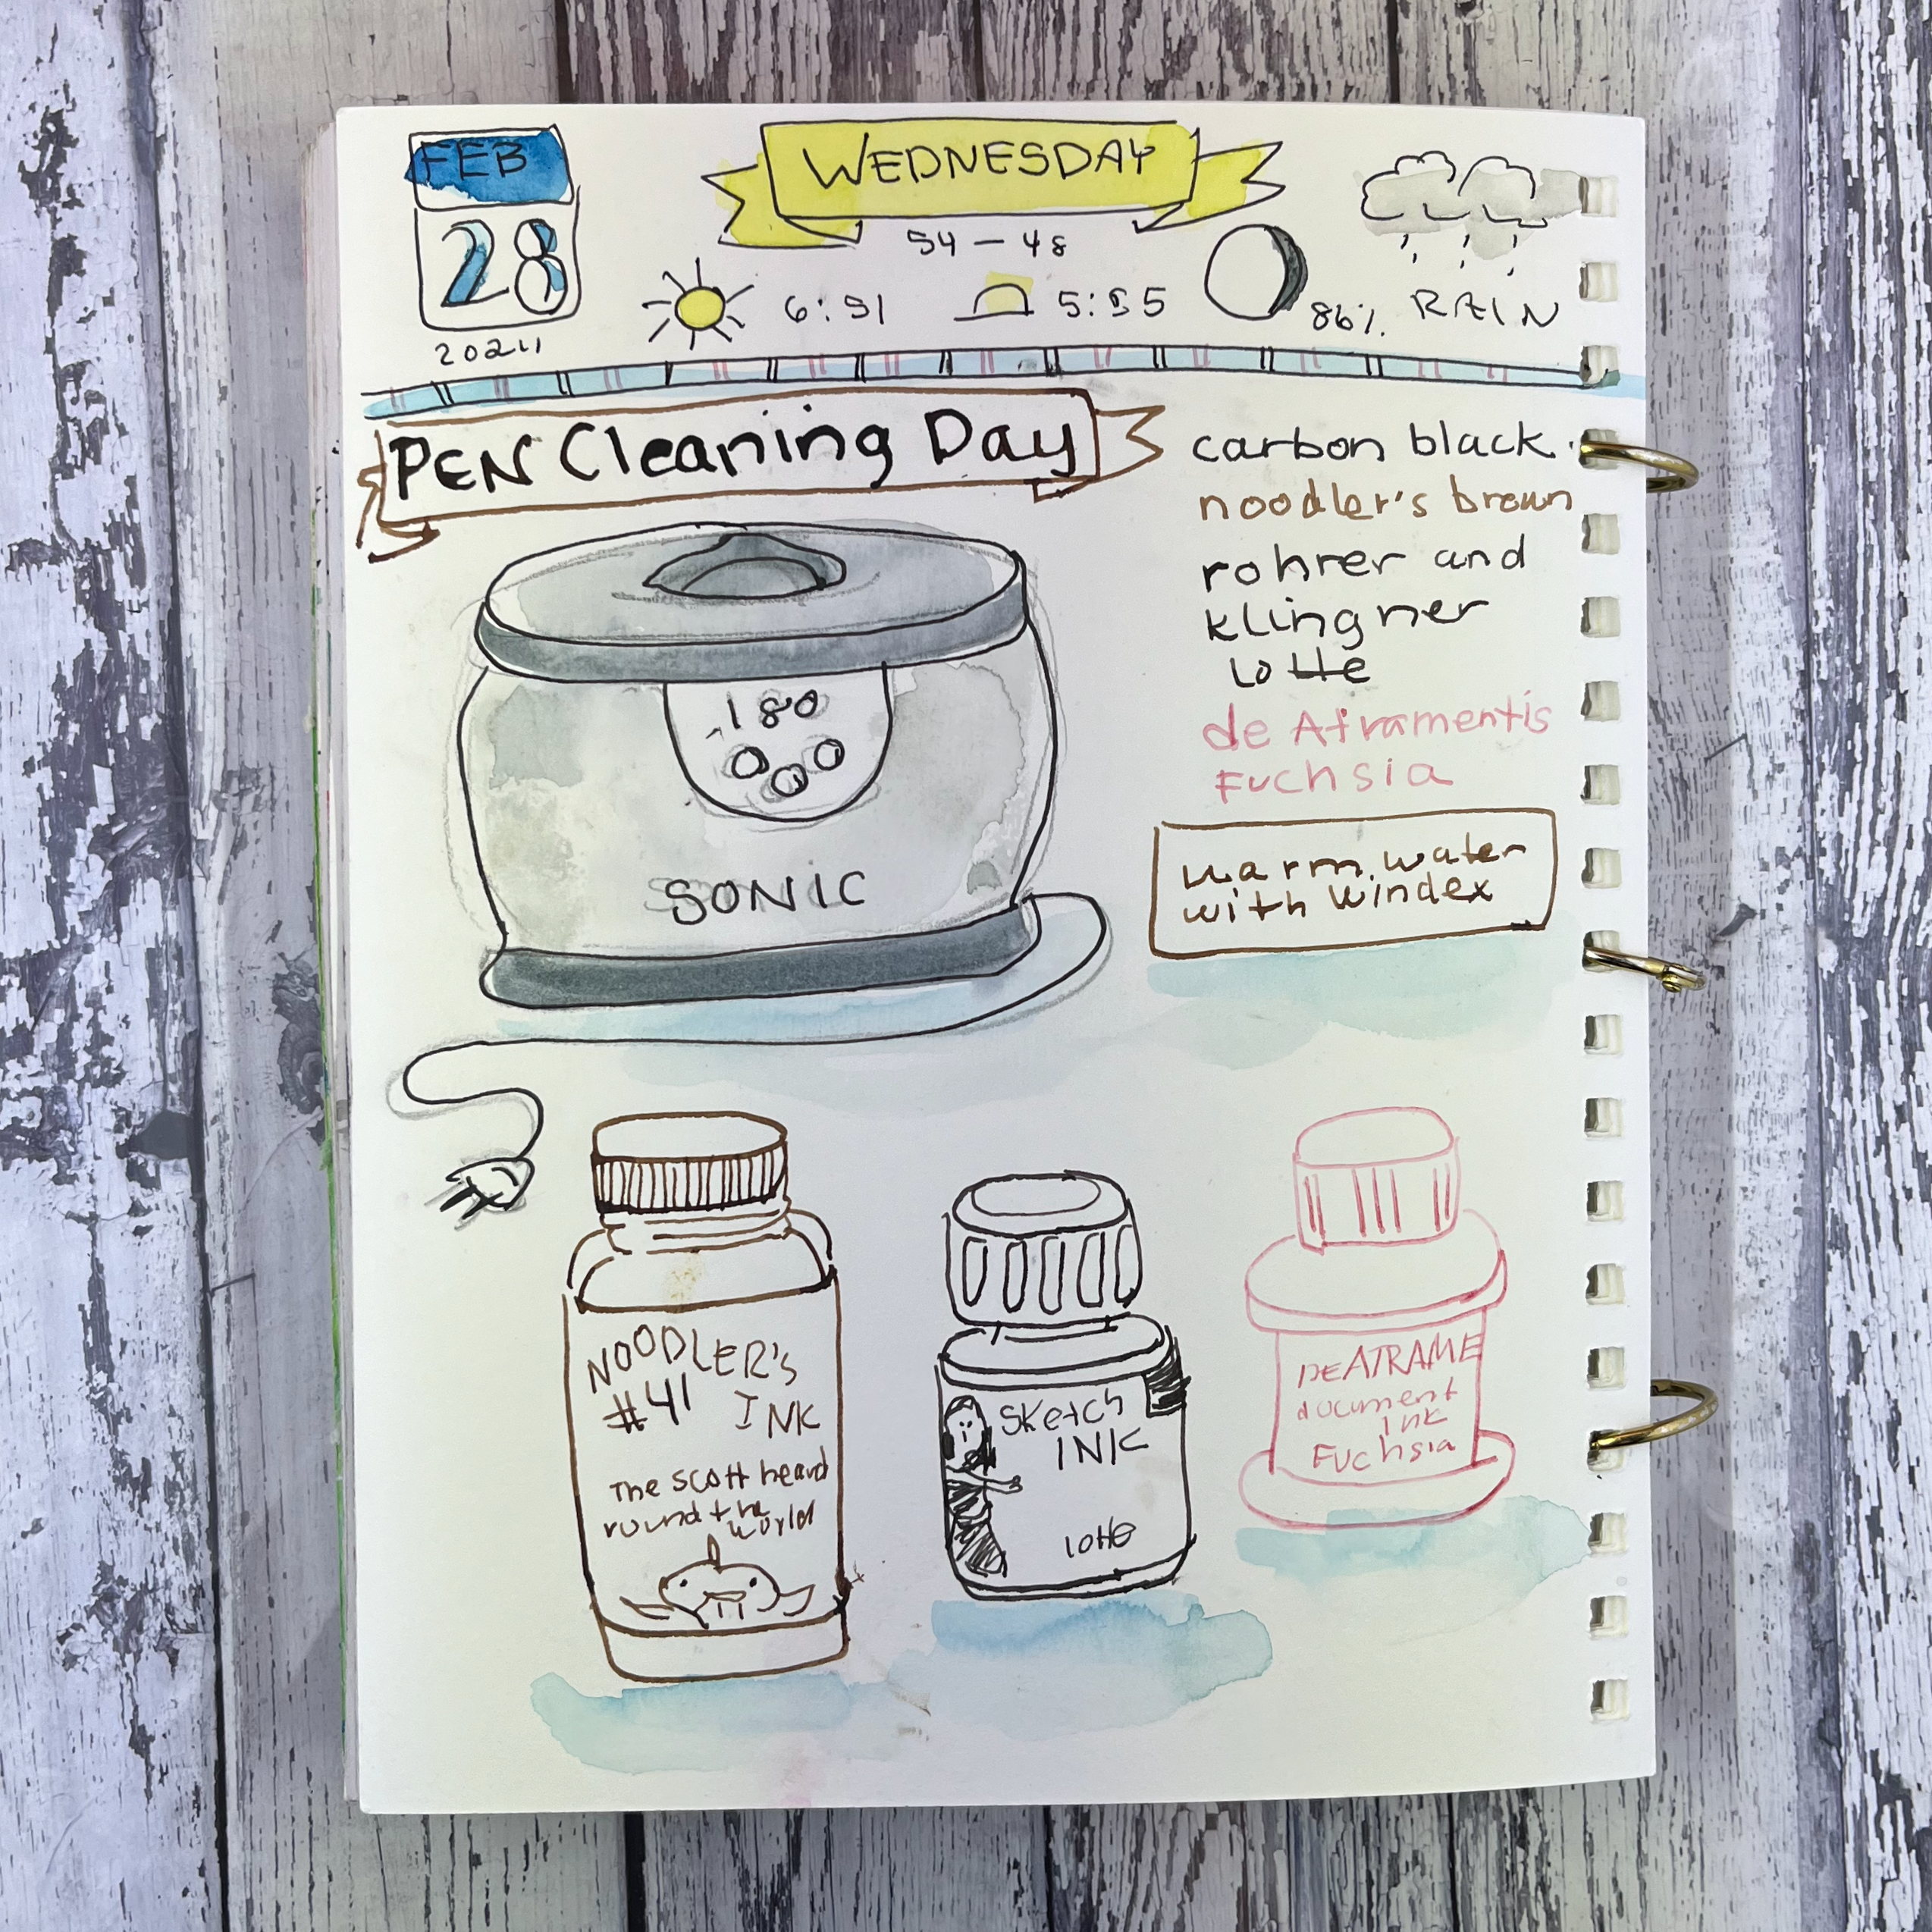 FEB
28
2024
WEDNESDAY
54 – 48
6:51
5:55
86%
RAIN
PEN Cleaning Day
carbon black
noodler's brown
rohrer and
klingner
lotte
de Atramentis
Fuchsia
180
SONIC
warm water
with windex
NOODLER'S
#41 INK
The scott heard
round the
world
Sketch
INK
lotte
DEATRAME
document
Ink
Fuchsia